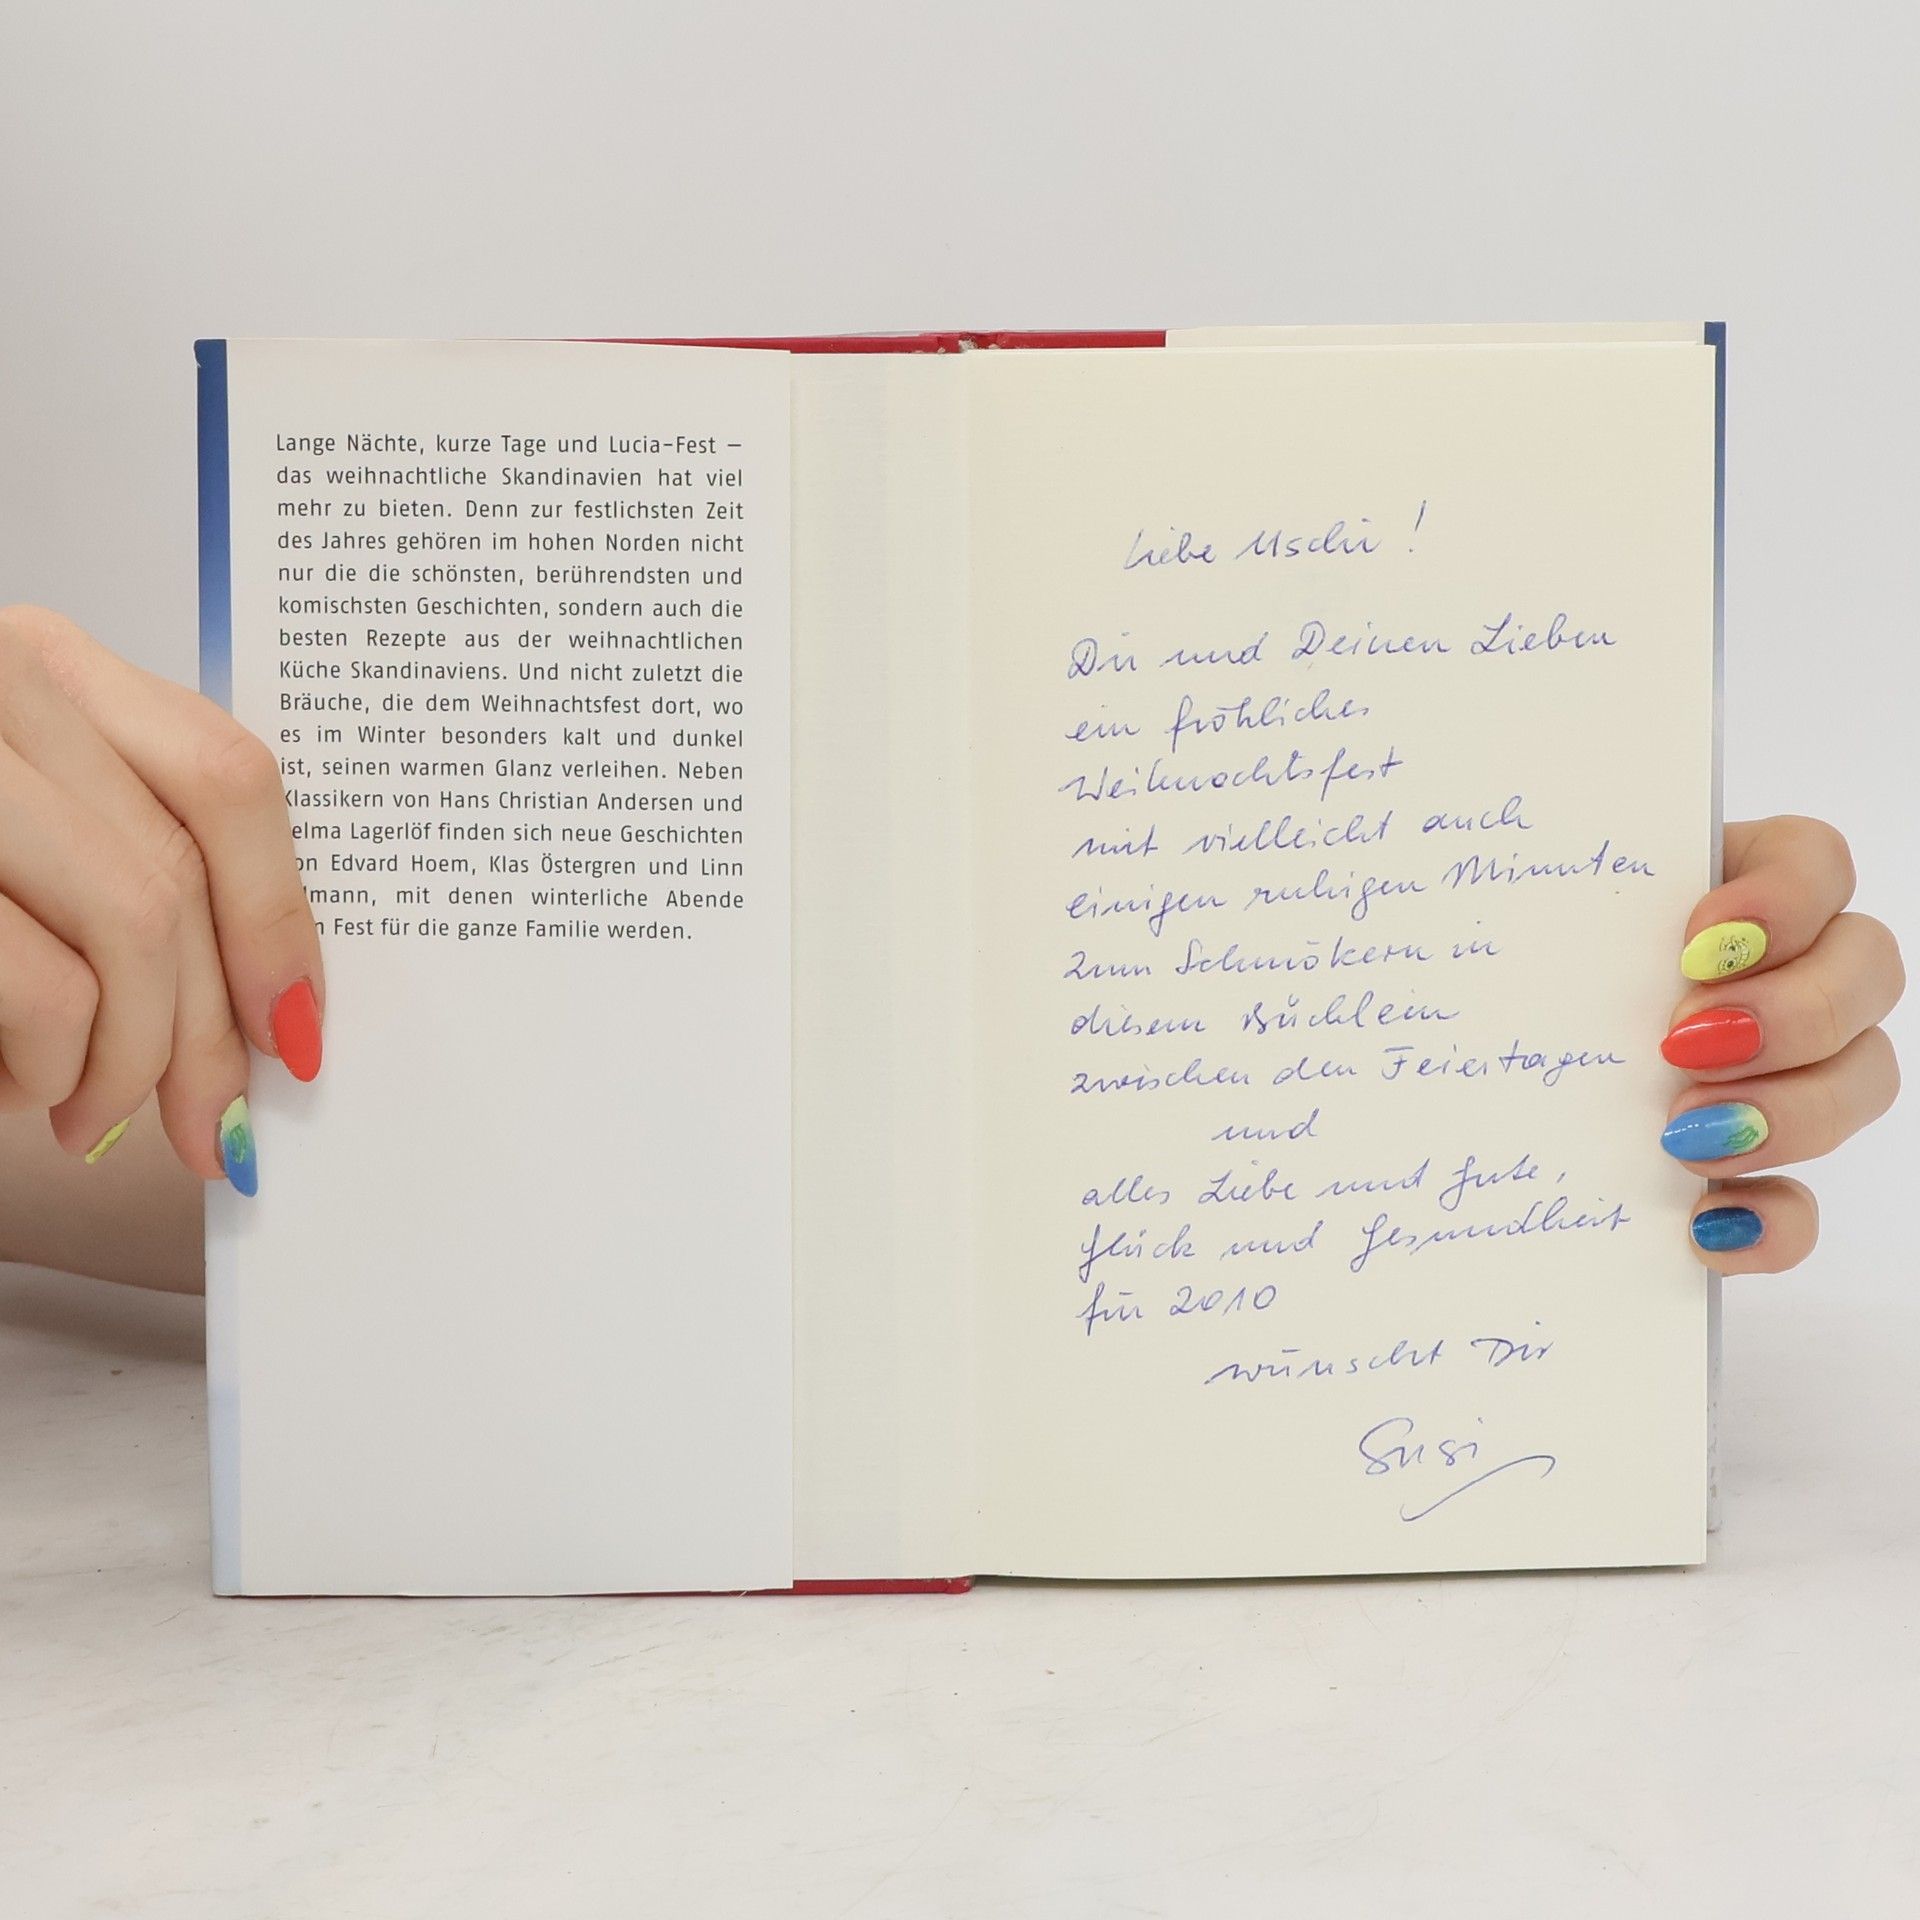 Lange Nächte, kurze Tage und Lucia-Fest –
das weihnachtliche Skandinavien hat viel
mehr zu bieten. Denn zur festlichsten Zeit
des Jahres gehören im hohen Norden nicht
nur die die schönsten, berührendsten und
komischsten Geschichten, sondern auch die
besten Rezepte aus der weihnachtlichen
Küche Skandinaviens. Und nicht zuletzt die
Bräuche, die dem Weihnachtsfest dort, wo
es im Winter besonders kalt und dunkel
ist, seinen warmen Glanz verleihen. Neben
Klassikern von Hans Christian Andersen und
elma Lagerlöf finden sich neue Geschichten
on Edvard Hoem, Klas Östergren und Linn
lmann, mit denen winterliche Abende
n Fest für die ganze Familie werden.
Liebe Uschi!
Dir und Deinen Lieben
ein fröhliches
Weihnachtsfest
mit vielleicht auch
einigen ruhigen Minuten
zum Schmökern in
diesem Büchlein
zwischen den Feiertagen
und
alles Liebe und Gute,
Glück und Gesundheit
für 2010
wünscht Dir
Susi